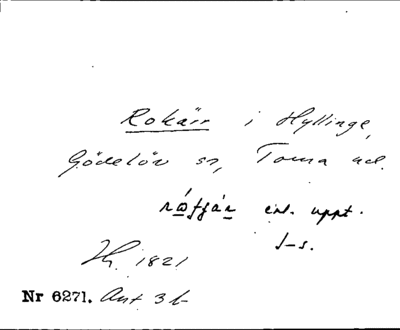 Rokärr i Hyllinge,
Gödelöv sn, Torna hd.
enl. uppt.
J-s.
1821
Nr 6271. Ant 3 b